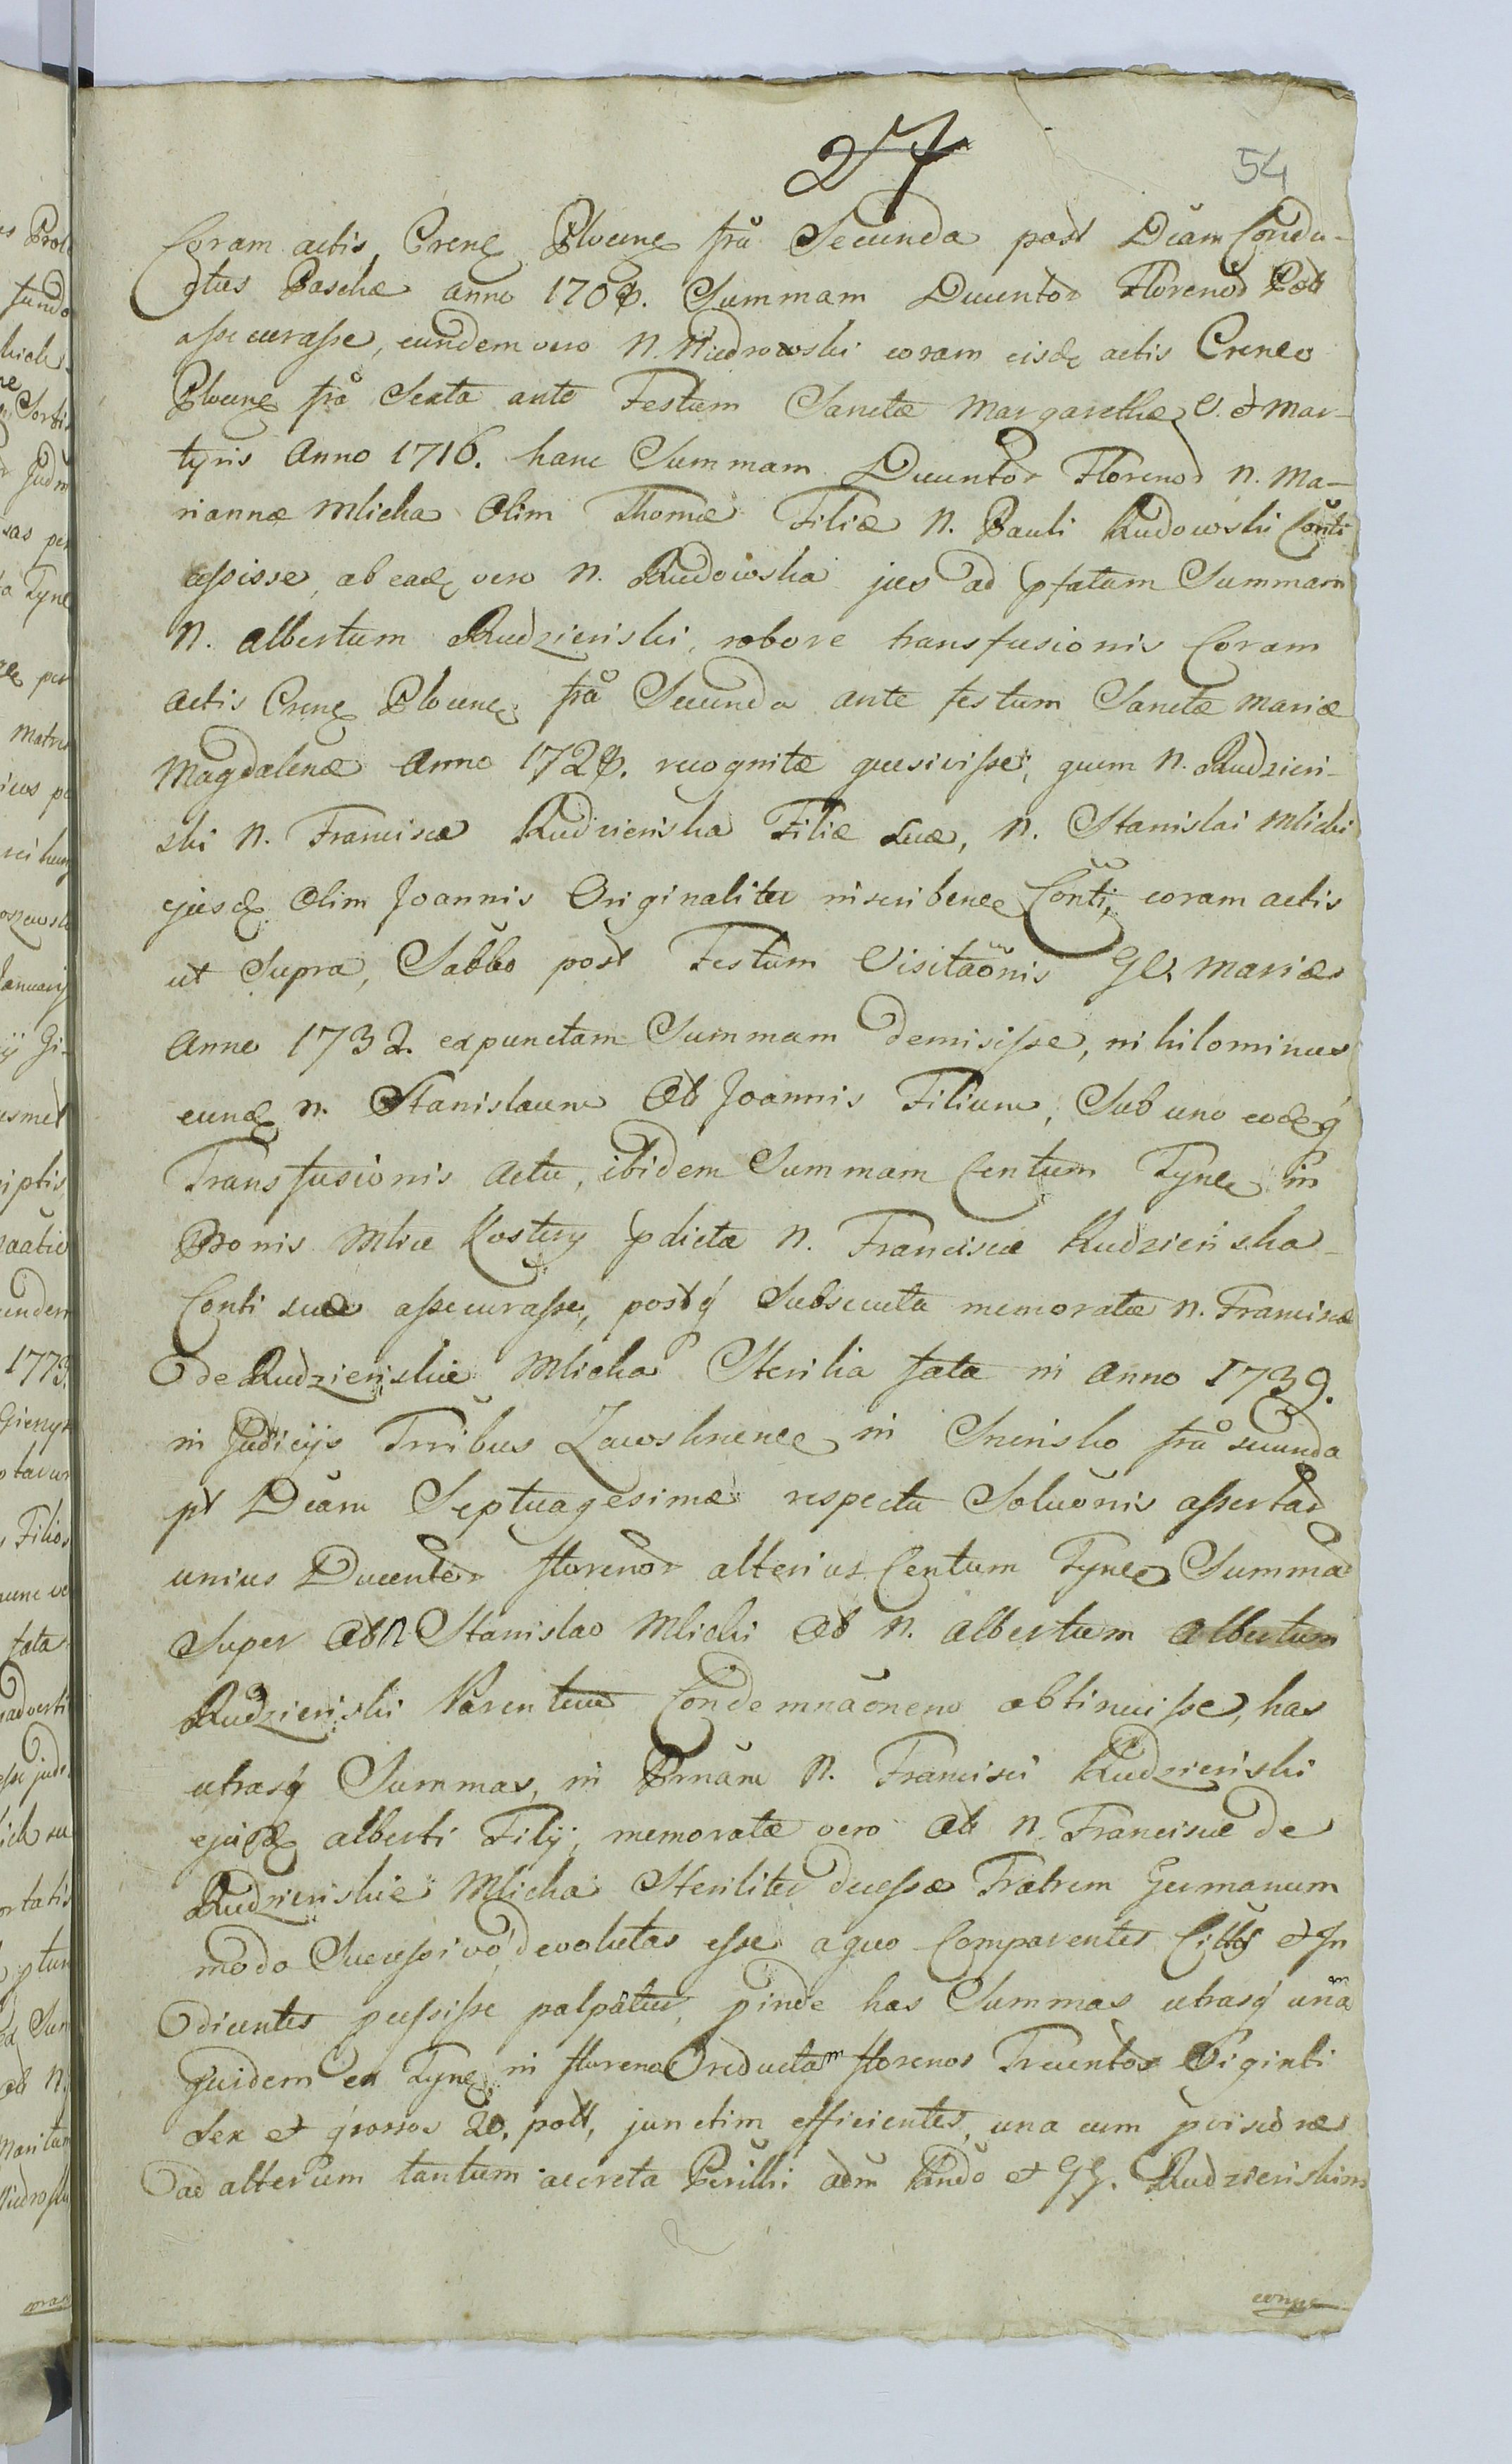 27
54
Coram actis Crenẽ Plocenẽ fra Secunda post Dcam Condu-
ctus Paschæ anno 1708. Summam Ducentor Florenor Poll
assecurasse, eundem vero N. Niedrowski coram eisd actis Crenẽ
Plocenẽ fra Sexta ante Festum Sanctæ Margarethæ V. et Mar-
tyris Anno 1716. hanc Summam Ducentor Florenor N. Ma-
riannæ Mlicka Olim Thomæ Filiæ N. Pauli Rudowski Conti
cessisse, ab ead vero N. Rudowska jus ad pfatam Summam
N. Albertum Rudzieński, robore transfusionis Coram
actis Crenẽ Plocenẽ fra Secunda ante festum Sanctæ Mariæ
Magdalenæ Anno 1728. recognitæ quesivisse, quem N. Rudzień-
ski N. Franciscæ Rudzieńska Filiæ suæ, N. Stanislai Mlicki
ejusd Olim Joannis Originaliter inscribenẽ Conti, coram actis
ut Supra, Sabbo post Festum Visitaonis GV. Mariæ
Anno 1732. expunctam Summam demisisse, nihilominus
eund N. Stanislaum Ol Joannis Filium, Sub uno eodq
Transfusionis actu, ibidem Summam Centum Tynẽ in
Bonis Mlice Kostery pdicta N. Franciscæ Rudzieńska
Conti suæ assecurasse, postq Subsecuta memoratæ N. Franciscæ
de Rudzieńskie Mlicka Sterilia fata in Anno 1739.
in Judicijs Trribus Zawskrnenẽ in Sreńsko fra secunda
pt Dcam Septuagesimæ respectu Soluonis assertar
unius Ducentor florenor alterius Centum Tynẽ Summar
Super Ol N Stanislao Mlicki Ol N. Albertum Albertum
Rudzieński Parentem Condemnaonem obtinuisse, has
utrasq Summas, in Prnam N. Francisci Rudzieński
ejusd Alberti Filij, memoratæ vero Ol N. Franciscæ de
Rudzieńskie Mlicka Steriliter decessæ Fratrem Germanum
modo Successivo devolutas esse a quo Comparentes et In
dicentes pcessisse palpatur, pinde has Summas utrasq unam
quidem ex Tynẽ in florenos reductam florenos Trecentos Viginti
sex et grossos 20. poll, junctim efficientes, una cum pvis
ad alterum tantum accreta Perilli adm Rndo et GG. Rudzieńskim
compe